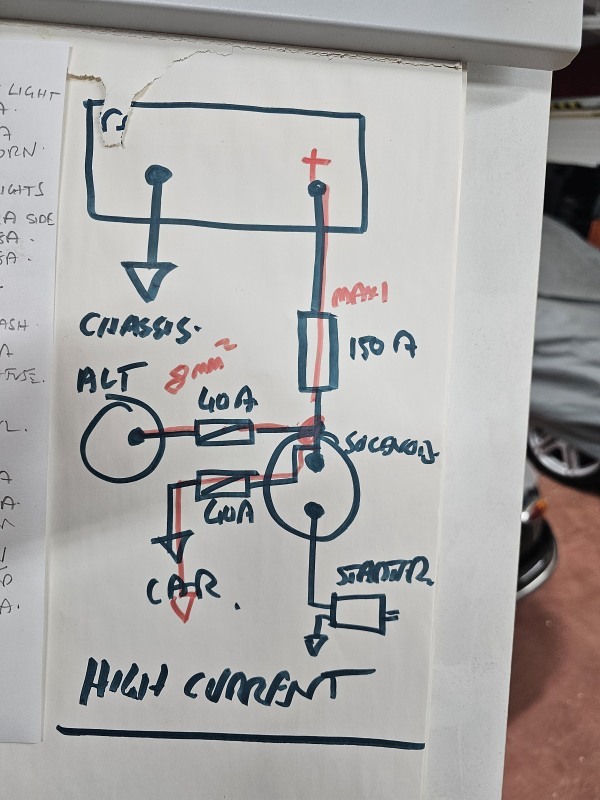 LIGHT
A.
A
ORN.
IGHTS
A SIDE
5A.
5A.
ASH.
A
FUSE.
A
A
A.
+
MAXI
150 A
CHASSIS.
ALT
8mm²
40A
SOLENOID
40A
CAR.
STARTER.
HIGH CURRENT